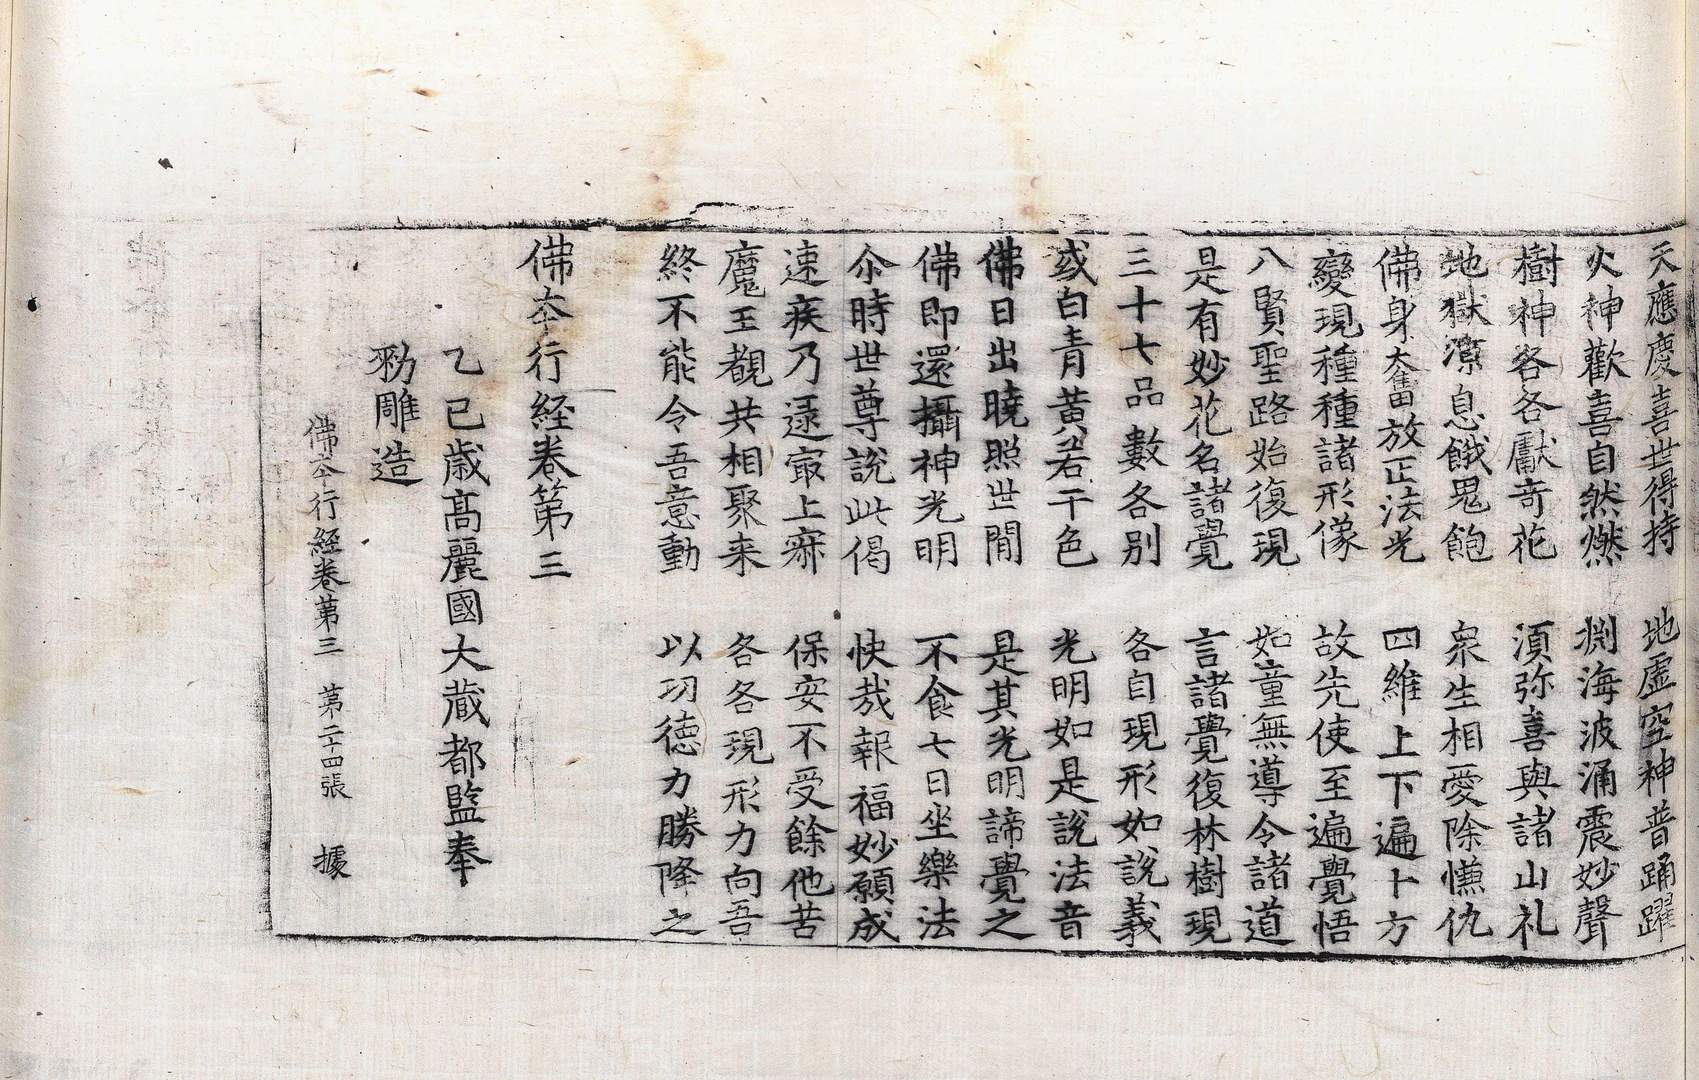 天應慶喜世得持　地虛空神普踊躍
火神歡喜自然燃　捌海波涌震妙聲
樹神各各獻奇花　湏弥喜與諸山礼
地獄湶息餓鬼飽　衆生相愛除慊仇
佛身大奮放正法光　四維上下遍十方
變現種種諸形像　故先使至遍覺悟
八賢聖路始復現　如童無導令諸道
是有妙花名諸覺　言諸覺復林樹現
三十七品數各別　各自現形如說義
或白青黃若干色　光明如是說法音
佛日出曉照世間　是其光明諦覺之
佛即還攝神光明　不食七日坐樂法
尒時世尊說此偈　快哉報福妙願成
速疾乃逯㝡上寂　保安不受餘他苦
魔王覩共相聚来　各各現形力向吾
終不能令吾意動　以功德力勝降之
佛夲行経卷第三
乙巳歳髙麗國大蔵都監奉
勑雕造
佛夲行経卷第三　第二十四張　據